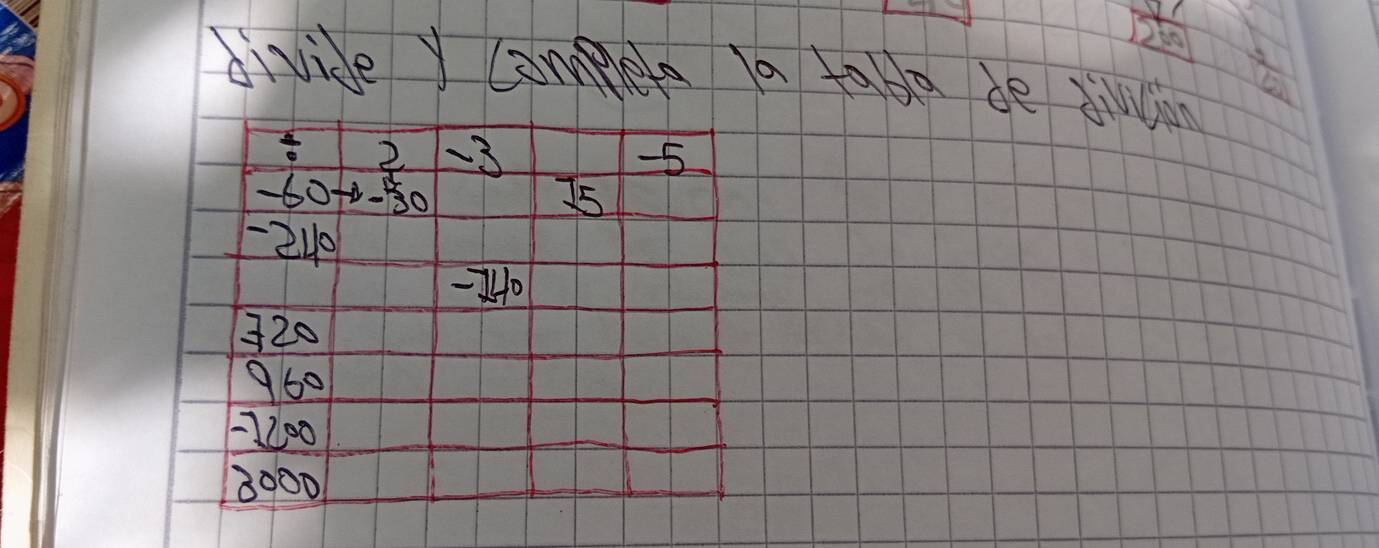 divide y completa la tabla de división
÷ 2 -3 -5
-60 → -30 15
-240
-140
720
960
-1200
3000
200